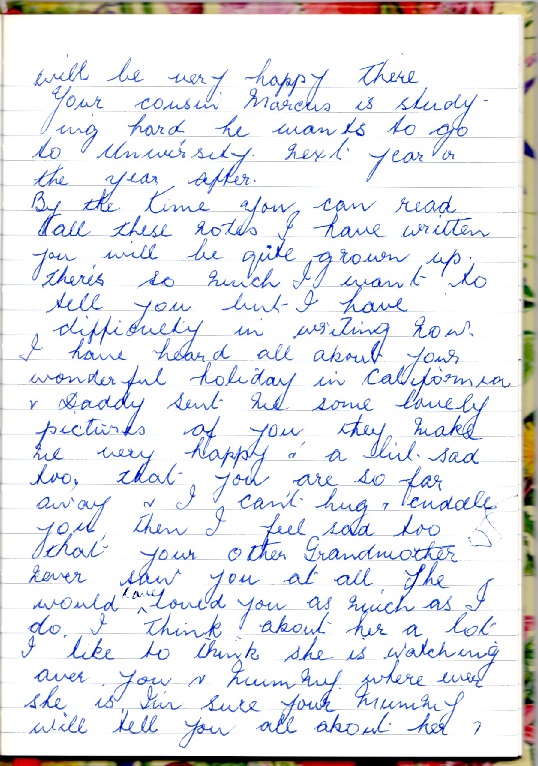 will be very happy there
Your cousin Marcus is study-
ing hard he wants to go
to University next year or
the year after.
By the time you can read
all these notes I have written
you will be quite grown up.
there's so much I want to
tell you but I have
difficulty in writing now.
I have heard all about your
wonderful holiday in California
& Daddy sent me some lovely
pictures of you they make
me very happy & a bit sad
too, that you are so far
away & I can't hug & cuddle
you, then I feel sad too
that your other Grandmother
never saw you at all She
would have loved you as much as I
do. I think about her a lot
I like to think she is watching
over you & Mummy where ever
she is, I'm sure your Mummy
will tell you all about her &